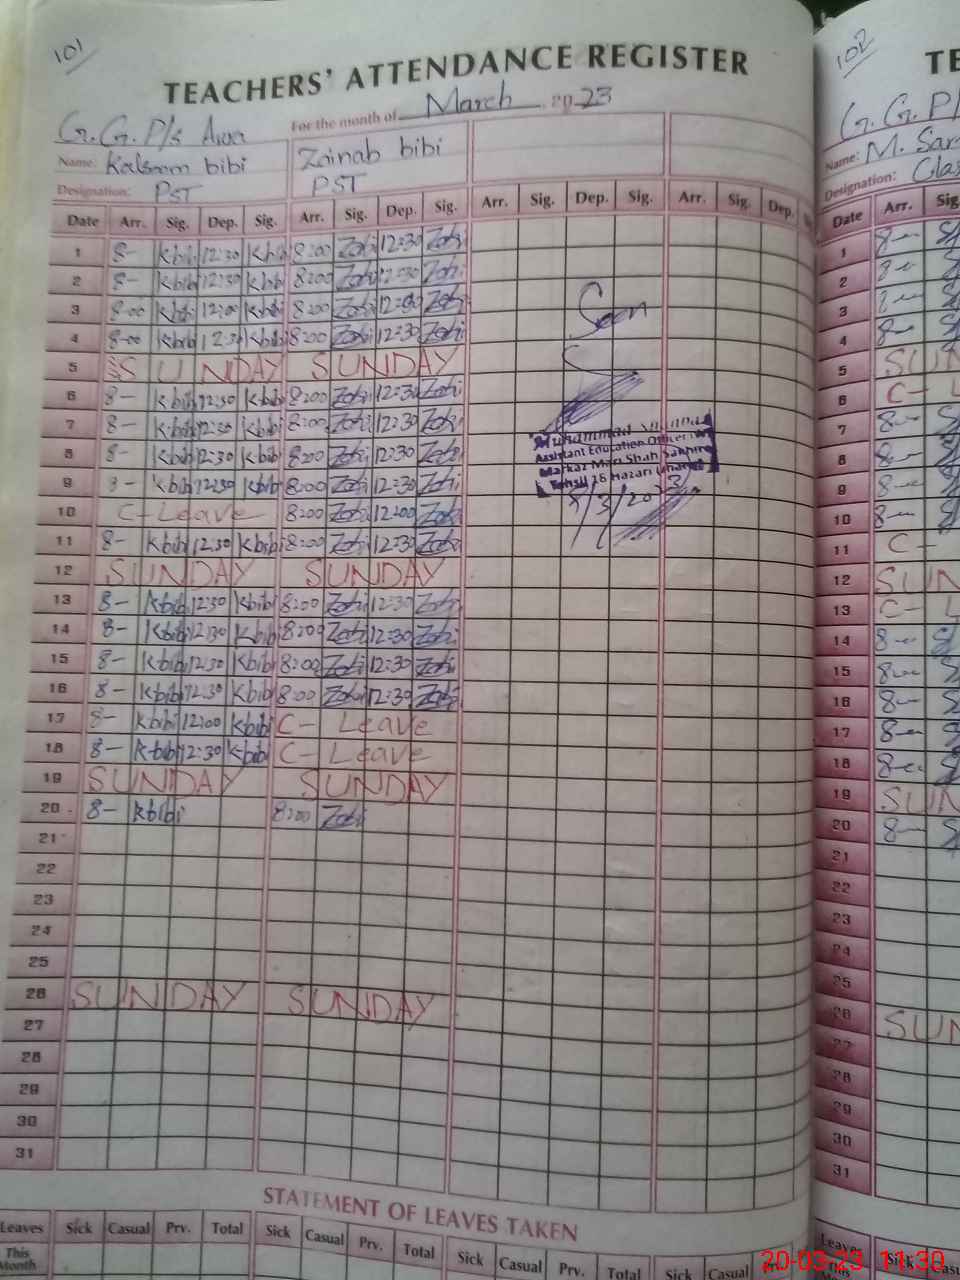 101
TEACHERS' ATTENDANCE REGISTER
For the month of March 2023
G.G. P/s
Name: Kalsoom bibi Zainab bibi
Designation: PST PST
Date Arr. Sig. Dep. Sig. Arr. Sig. Dep. Sig. Arr. Sig. Dep. Sig. Arr. Sig. Dep.
1 8- kbibi 12:30 kbibi 8:00 12:30
2 8- kbibi 12:30 kbibi 8:00 12:30
3 8-00 kbibi 12:00 kbibi 8:00 12:00
4 8-00 kbibi 12:30 kbibi 8:00 12:30
5 SUNDAY SUNDAY
6 8- kbibi 12:30 kbibi 8:00 12:30
7 8- kbibi 12:30 kbibi 8:00 12:30
8 8- kbibi 12:30 kbibi 8:00 12:30
9 8- kbibi 12:30 kbibi 8:00 12:30
10 C-Leave 8:00 12:00
11 8- kbibi 12:30 kbibi 8:00 12:30
12 SUNDAY SUNDAY
13 8- kbibi 12:30 kbibi 8:00 12:30
14 8- kbibi 12:30 kbibi 8:00 12:30
15 8- kbibi 12:30 kbibi 8:00 12:30
16 8- kbibi 12:30 kbibi 8:00 12:30
17 8- kbibi 12:00 kbibi C- Leave
18 8- kbibi 12:30 kbibi C- Leave
19 SUNDAY SUNDAY
20 8- kbibi 8:00
21
22
23
24
25
26 SUNDAY SUNDAY
27
28
29
30
31
Seen
Muhammad
Assistant Education Officer
Markaz Mari Shah Sakhira
Tehsil 18 Hazari
/3/2023
STATEMENT OF LEAVES TAKEN
Leaves Sick Casual Prv. Total Sick Casual Prv. Total Sick Casual Prv. Total Sick Casual
This Month
102
TE
G.G. P/
Name: M. Sar
Designation:
Date Arr. Sig.
1 8-
2 8-
3
4 8-
5 SUN
6 C- L
7 8-
8 8-
9 8-
10 8-
11 C-
12 SUN
13 C- L
14 8-
15 8-
16 8-
17 8-
18 8-
19 SUN
20 8-
21
22
23
24
25
26 SUN
27
28
29
30
31
Leaves Sick Casu
20-03-23 11:30